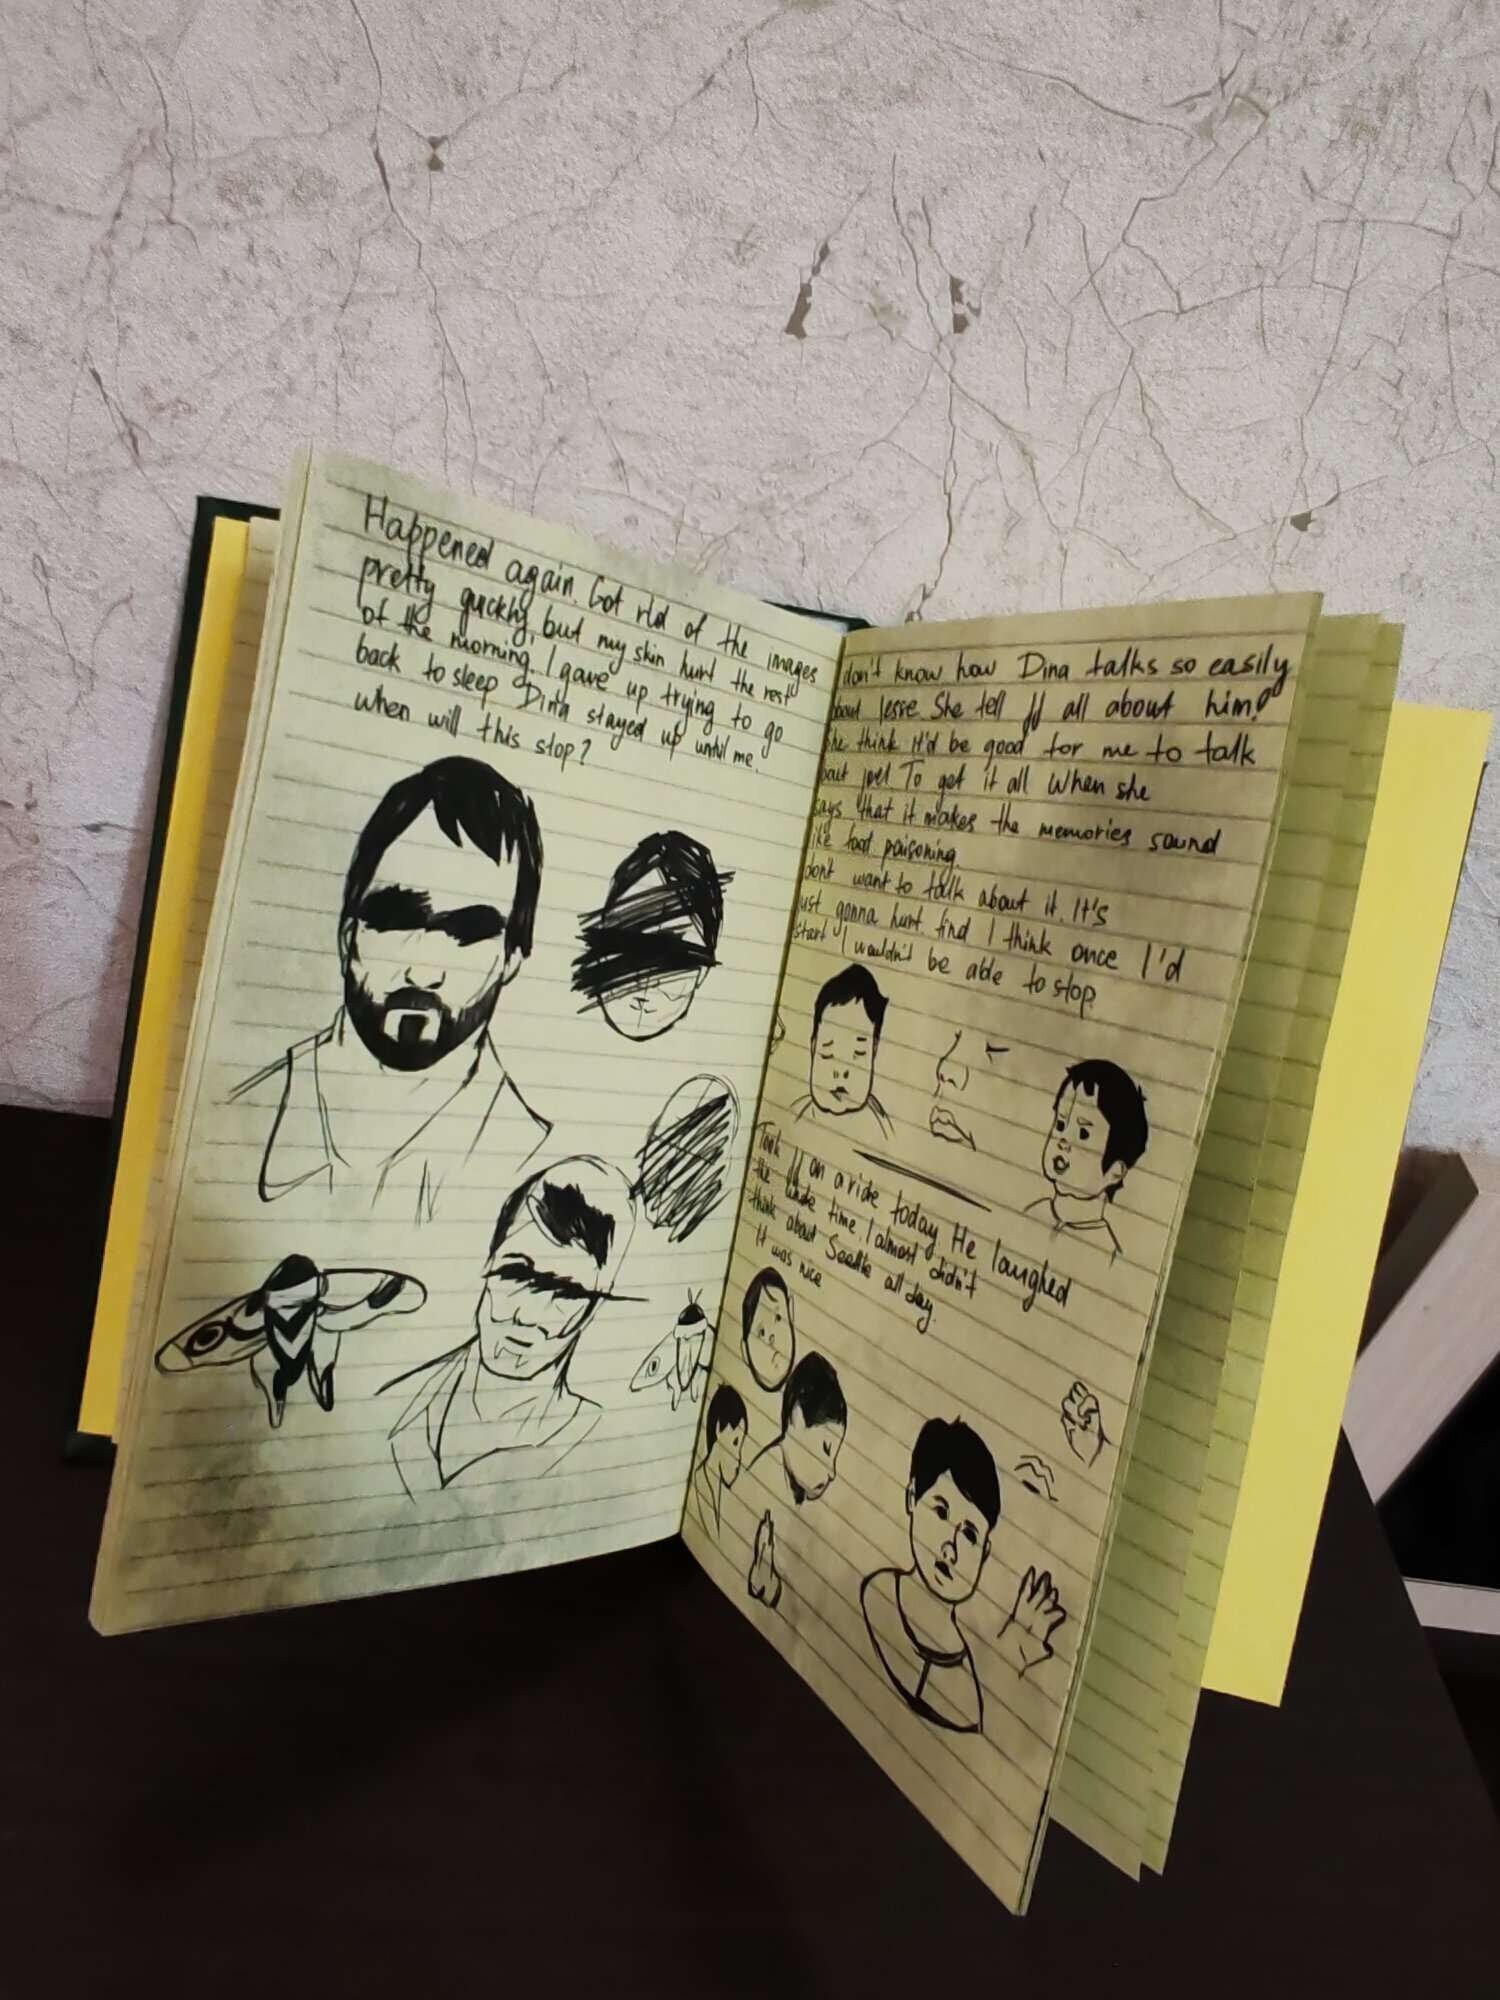 Happened again. Got rid of the images
pretty quickly, but my skin hurt the rest
of the morning. I gave up trying to go
back to sleep Dina stayed up until me.
when will this stop?
don't know how Dina talks so easily
about Jesse. She tell JJ all about him?
she think it'd be good for me to talk
bout joel. To get it all When she
says that it makes the memories sound
like food poisoning.
don't want to talk about it. It's
ust gonna hurt. find I think once I'd
start I wouldn't be able to stop.
Took JJ on a ride today. He laughed
the whole time. I almost didn't
think about Seattle all day.
It was nice